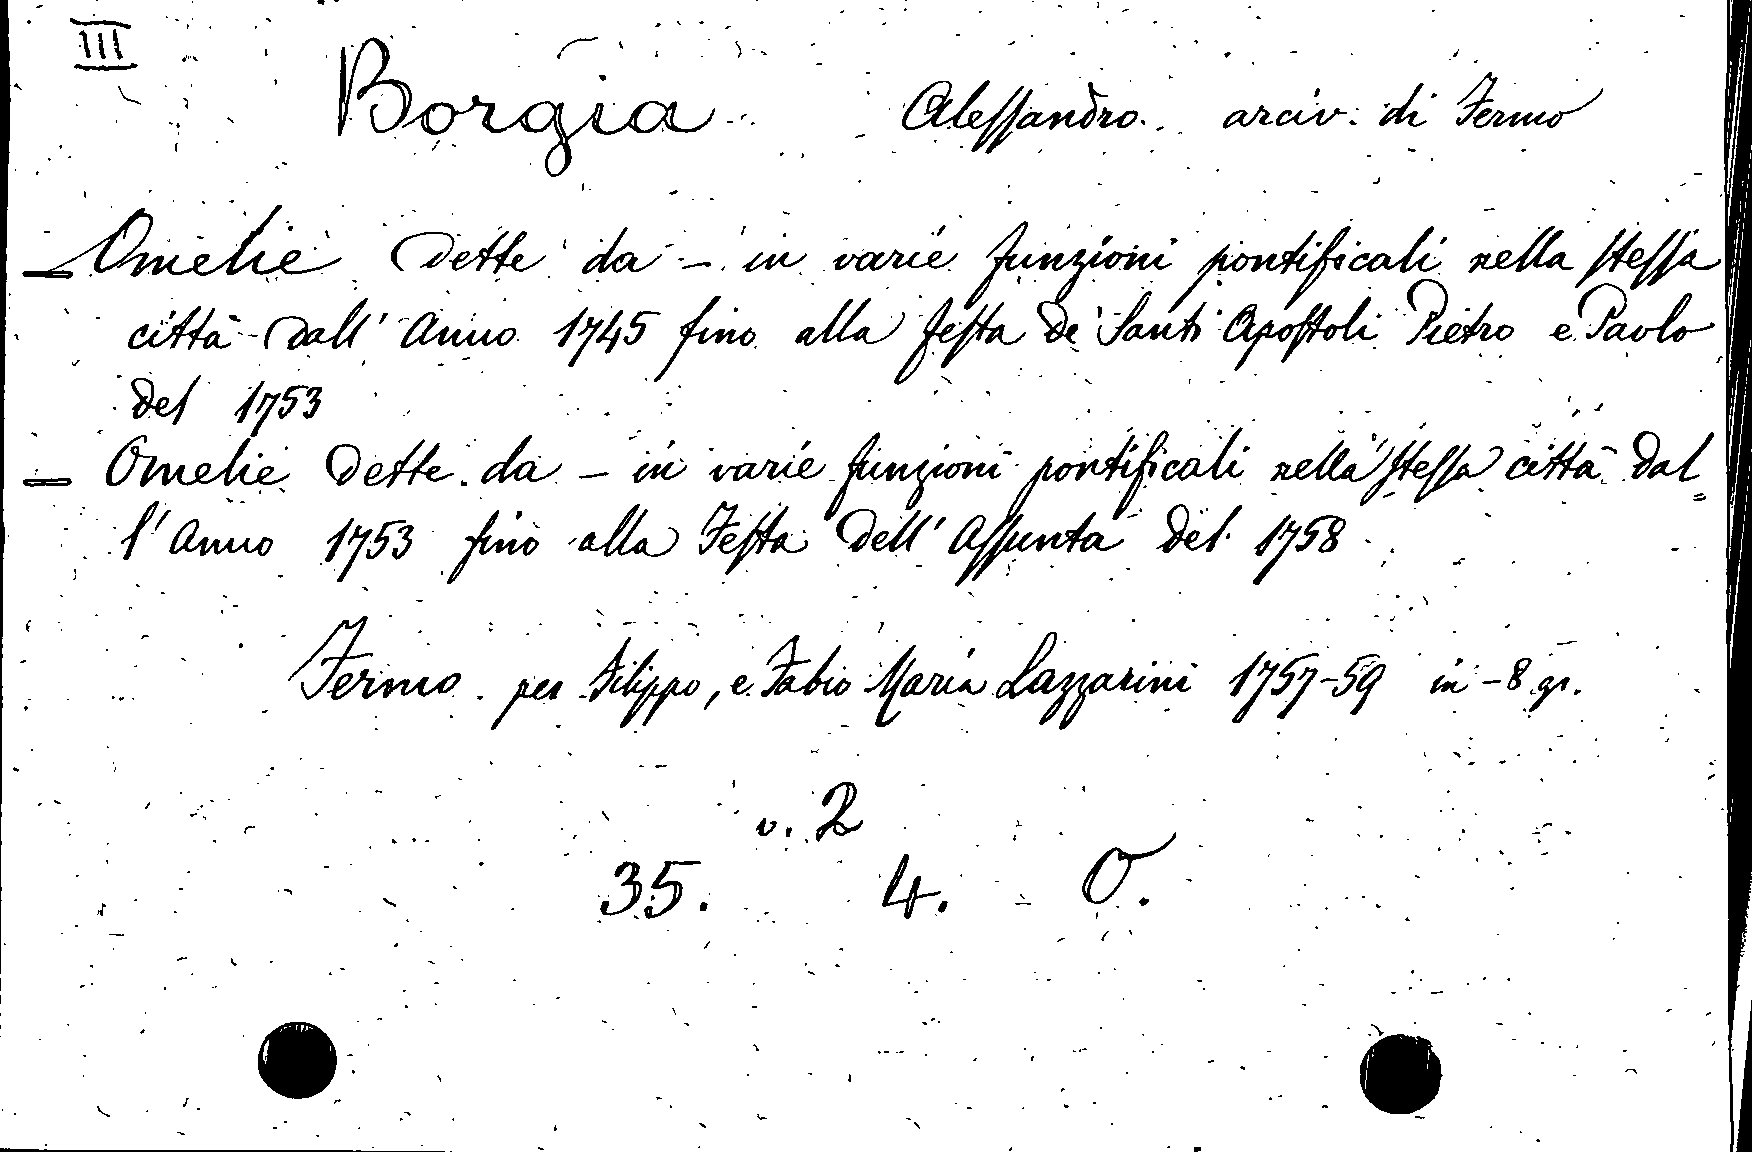 III
Borgia Alessandro. arciv. di Fermo
— Omelie dette da — in varie funzioni pontificali nella stessa
città dall' Anno 1745 fino alla festa de' Santi Apostoli Pietro e Paolo
del 1753
— Omelie dette da — in varie funzioni pontificali nella stessa città dal=
l' Anno 1753 fino alla Festa dell' Assunta del 1758
Fermo. per Filippo, e Fabio Maria Lazzarini 1757-59 in-8 gr.
v. 2
35. 4. O.